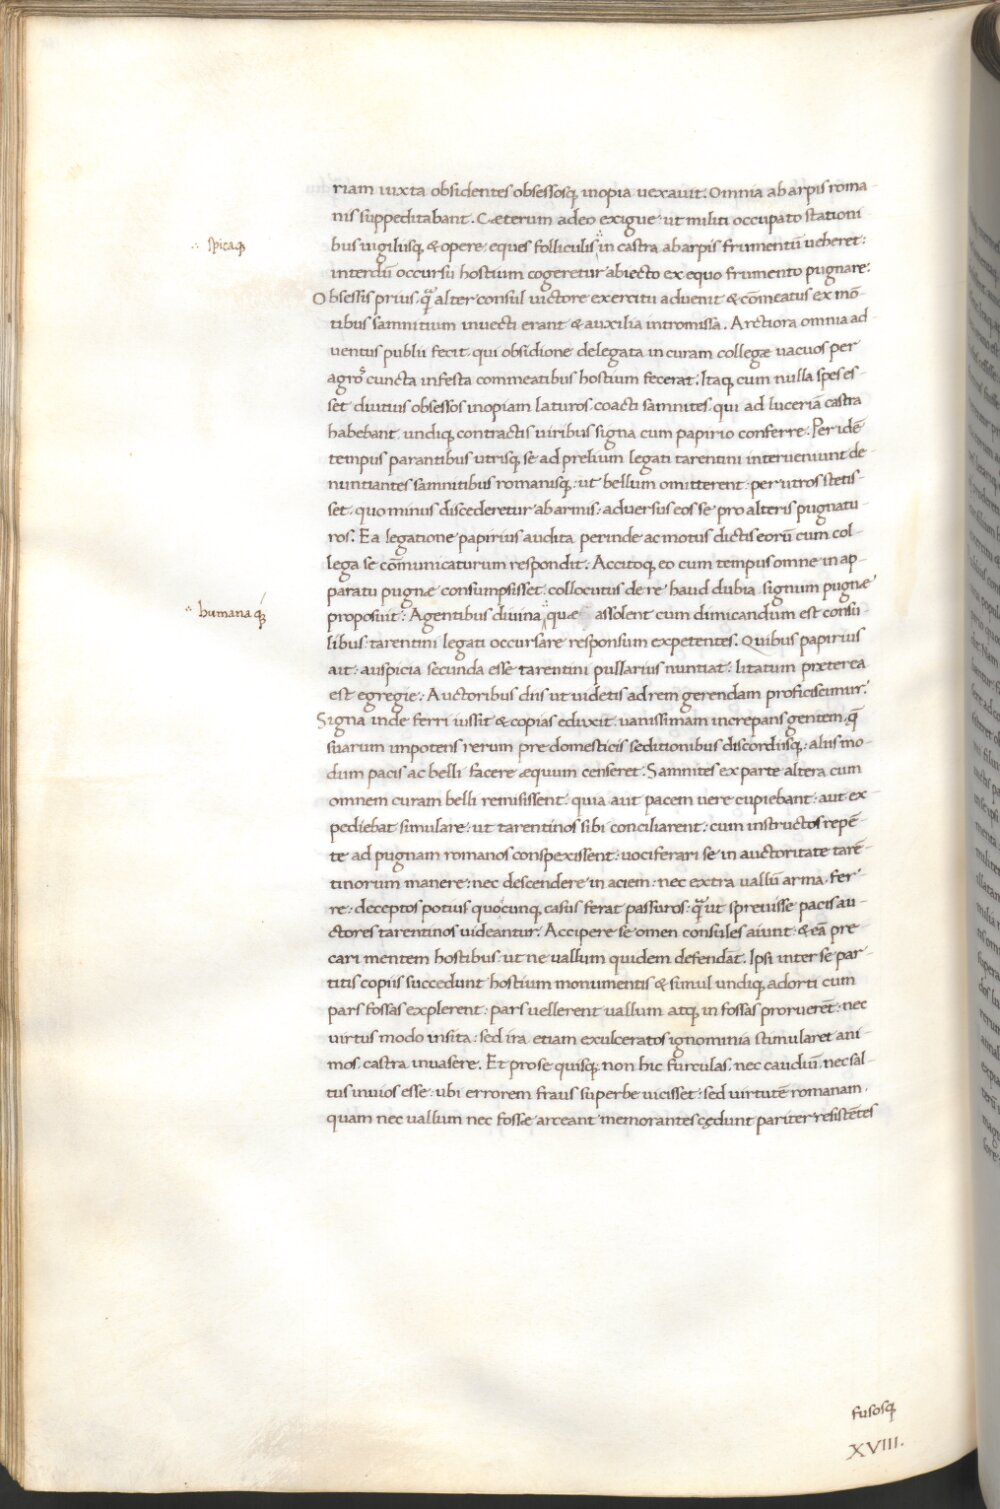 riam iuxta obsidentes obsessosq; inopia uexauit. Omnia ab arpis roma-
nis suppeditabant. Cæterum adeo exigue: ut militi occupato stationi-
bus uigiliisq; & opere: eques folliculis in castra ab arpis frumentũ ueheret:
∴ spicaq;
interdũ occursu hostium cogeretur abiecto ex equo frumento pugnare:
Obsessis prius q̃ alter consul uictore exercitu aduenit & cõmeatus ex mõ-
tibus samnitium inuecti erant & auxilia intromissa. Arctiora omnia ad-
uentus publii fecit. qui obsidione delegata in curam collegæ uacuos per
agros cuncta infesta commeatibus hostium fecerat. Itaq; cum nulla spes es-
set diutius obsessos inopiam laturos. coacti samnites. qui ad luceriã castra
habebant undiq; contractis uiribus signa cum papirio conferre. Per idẽ
tempus parantibus utrisq; se ad prelium legati tarentini interueniunt de-
nuntiantes samnitibus romanisq; ut bellum omitterent: per utros stetis-
set. quo minus discederetur ab armis: aduersus eos se pro alteris pugnatu-
ros. Ea legatione papirius audita perinde ac motus dictis eorũ cum col-
lega se cõmunicaturum respondit: Accitoq; eo cum tempus omne in ap-
paratu pugnæ consumpsisset. collocutus de re haud dubia signum pugnæ
proposuit: Agentibus diuina quæ assolent cum dimicandum est consu-
∴ humanaq;
libus: tarentini legati occursare responsum expetentes. Quibus papirius
ait: auspicia secunda esse tarentini pullarius nuntiat: litatum præterea
est egregie: Auctoribus diis ut uidetis ad rem gerendam proficiscimur:
Signa inde ferri iussit & copias eduxit. uanissimam increpans gentem. q̃
suarum impotens rerum pre domesticis seditionibus discordiisq;: aliis mo-
dum pacis ac belli facere æquum censeret. Samnites ex parte altera cum
omnem curam belli remisissent. quia aut pacem uere cupiebant: aut ex-
pediebat simulare: ut tarentinos sibi conciliarent: cum instructos repẽ-
te ad pugnam romanos conspexissent: uociferari se in auctoritate tarẽ-
tinorum manere: nec descendere in aciem: nec extra uallũ arma fer-
re: deceptos potius quocunq; casus ferat passuros: q̃ ut spreuisse pacis au-
ctores tarentinos uideantur. Accipere se omen consules aiunt: & eã pre-
cari mentem hostibus: ut ne uallum quidem defendãt. Ipsi inter se par-
titis copiis succedunt hostium monumentis & simul undiq; adorti cum
pars fossas explerent: pars uellerent uallum atq; in fossas proruerẽt: nec
uirtus modo insita: sed ira etiam exulceratos ignominia stimularet ani-
mos. castra inuasere. Et pro se quisq; non hic furculas. nec caudiũ. nec sal-
tus inuios esse. ubi errorem fraus superbe uicisset: sed uirtutẽ romanam.
quam nec uallum nec fossæ arceant memorantes cędunt pariter resistẽtes
fusosq;
XVIII.